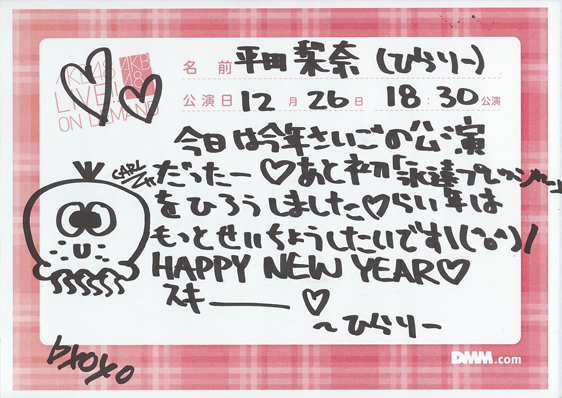 AKB48
LIVE!!
ON DEMAND
AKB
48
名 前 平田 梨奈 (ひらりー)
公演日 12 月 26 日 18:30 公演
今日は今年さいごの公演
だったー♡あと初「永遠プレッシャー」
をひろうしました♡らい年は
もっとせいちょうしたいです\(^o^)/
HAPPY NEW YEAR♡
スキ——— ♡
～ひらりー
CARL
xoxo
DMM.com